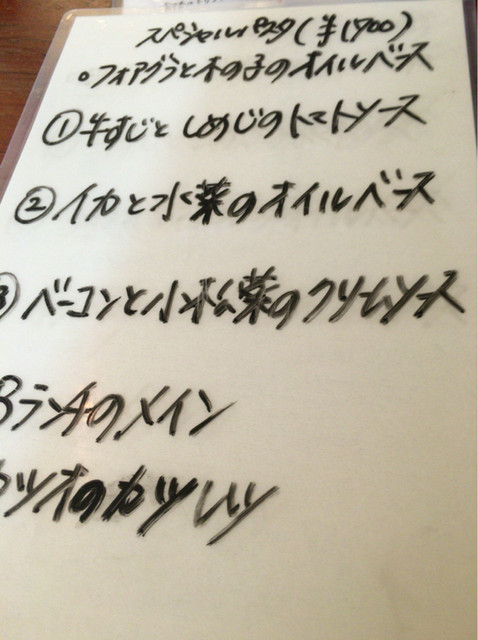 スペシャルパスタ(¥1,900)
◦フォアグラと木の子のオイルベース
①牛すじと しめじのトマトソース
②イカと水菜のオイルベース
③ベーコンと小松菜のクリームソース
Bランチのメイン
カツオのカツレツ